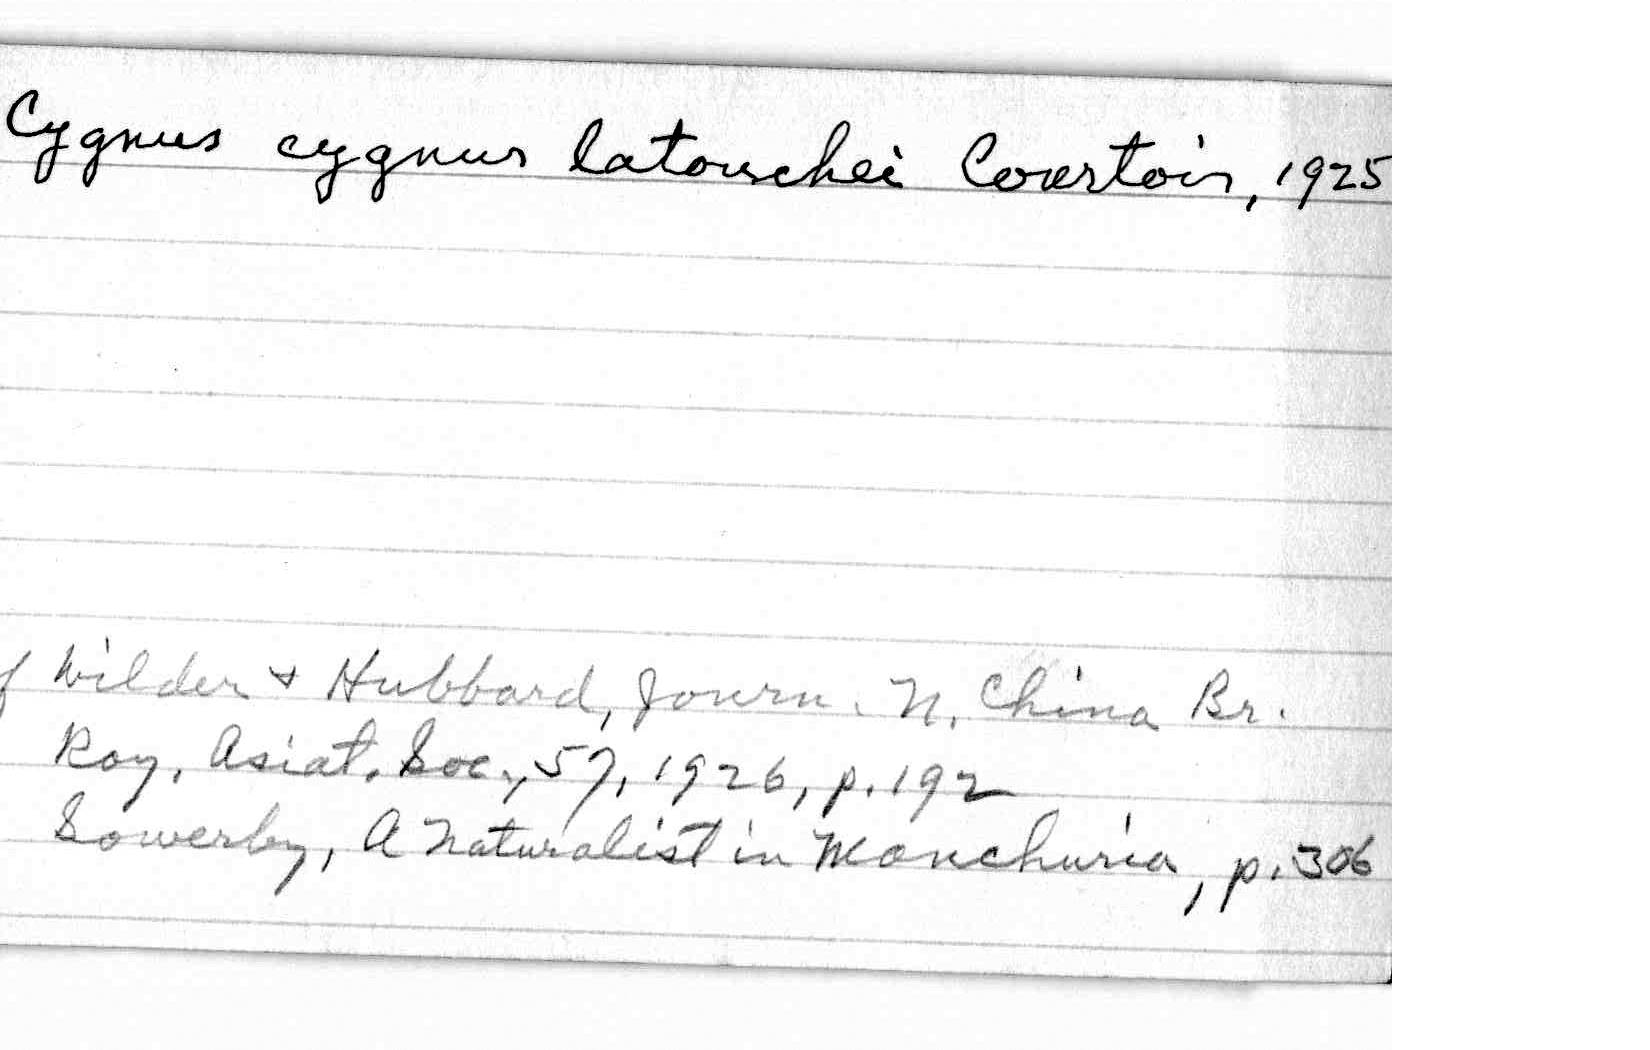 Cygnus cygnus latouchei Courtois, 1925
f Wilder & Hubbard, Journ. N. China Br.
Roy. Asiat. Soc., 57, 1926, p. 192
Sowerby, A Naturalist in Manchuria, p. 306